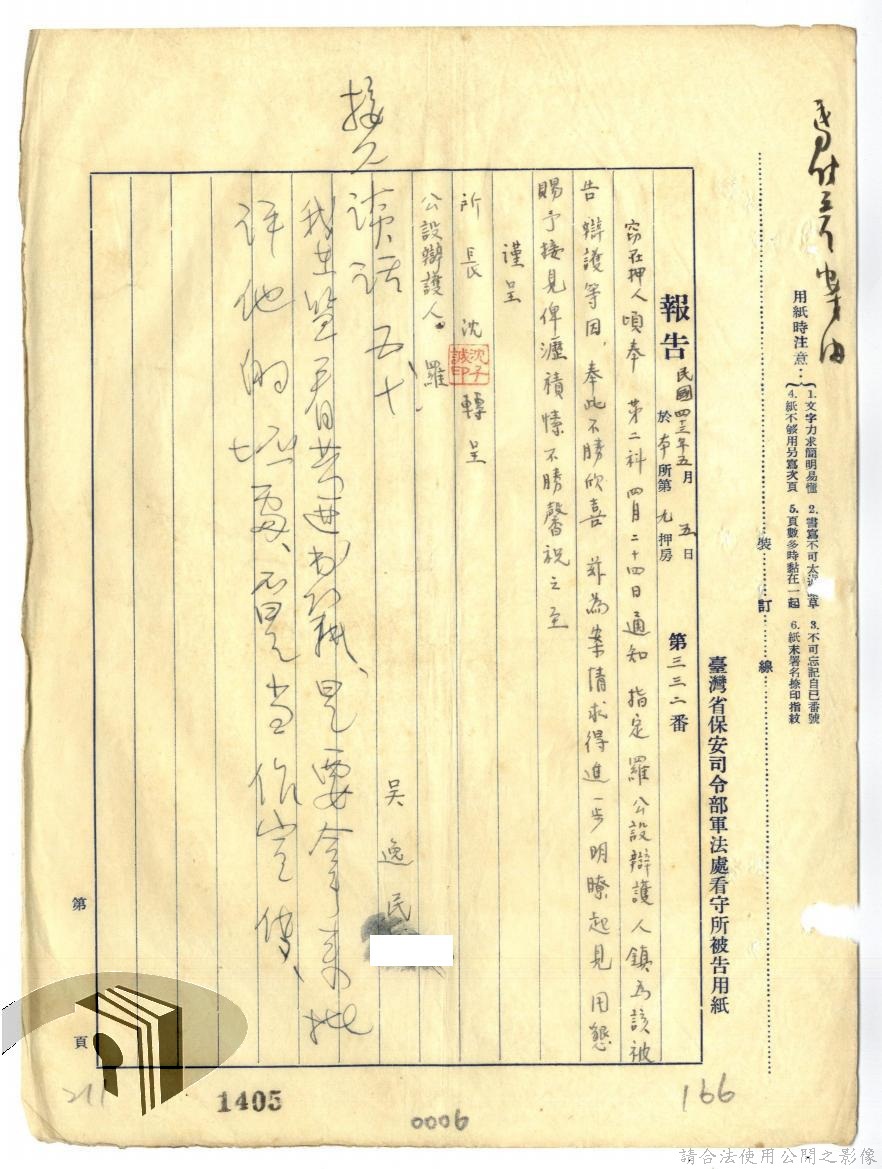 用紙時注意：
1. 文字力求簡明易懂 2. 書寫不可太潦草 3. 不可忘記自己番號
4. 紙不够用另寫次頁 5. 頁數多時黏在一起 6. 紙末署名捺印指紋
裝訂線
臺灣省保安司令部軍法處看守所被告用紙
報告 民國四十三年五月五日
於本所第九押房
第三三二番
竊在押人頃奉 第二科四月二十四日通知 指定羅公設辯護人鎮為該被
告辯護等因，奉此不勝欣喜 茲為案情求得進一步明瞭起見 用懇
賜予接見俾瀝積愫不勝馨祝之至
謹呈
所長沈 轉呈
沈子誠印
公設辯護人 羅
吳逸民
接见
谈话五十
我在监看普通书籍、是要拿来批
评他的坏處、不是当作宣传、
第 頁
211
1405
0006
166
請合法使用公開之影像